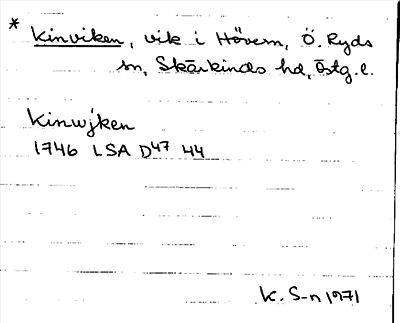 * Kinviken, vik i Hövern, Ö. Ryds
sn, Skärkinds hd, Östg. l.
Kinwjken
1746 LSA D47 44
K. S-n 1971